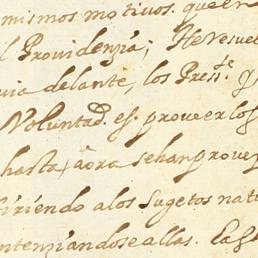 mismos motivos, que en
l Providenzia; He resuel
uia delante, los Press.te q
Voluntad. es. proveer los
hasta, aóra se han prove
firiendo alos Sugetos natu
ntenziandose a llas. Ea